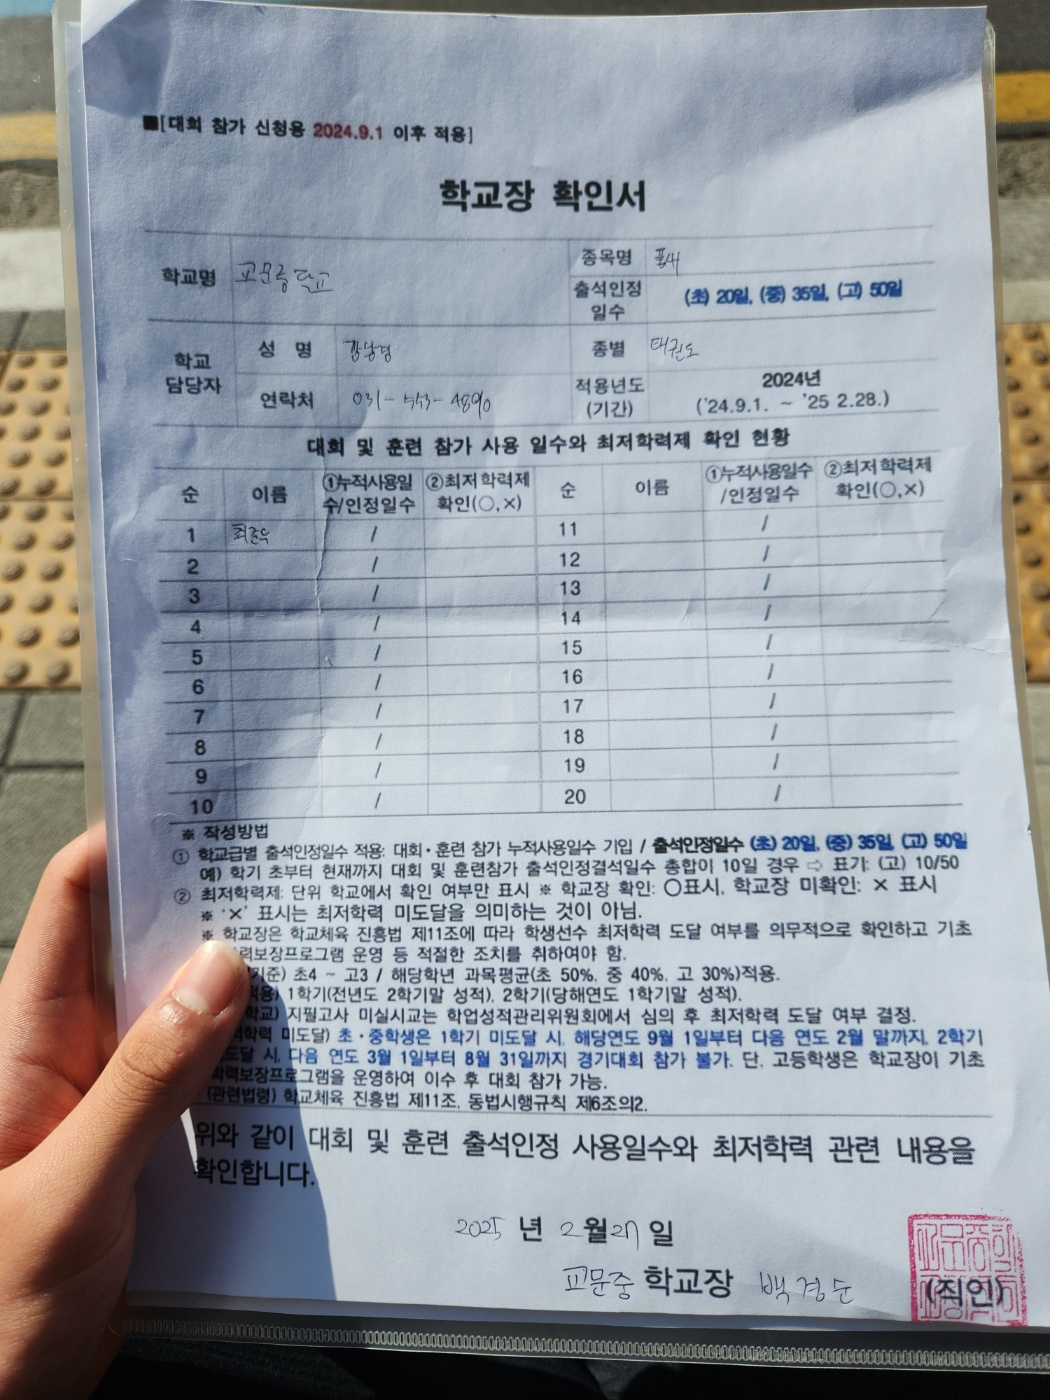 ■[대회 참가 신청용 2024.9.1 이후 적용]
학교장 확인서
학교명 교문중학교 종목명 품새
출석인정 일수 (초) 20일, (중) 35일, (고) 50일
학교 담당자 성 명 종별 태권도
연락처 031-553-4890 적용년도 (기간) 2024년 ('24.9.1. ~ '25 2.28.)
대회 및 훈련 참가 사용 일수와 최저학력제 확인 현황
순 이름 ①누적사용일수/인정일수 ②최저학력제 확인(○,×) 순 이름 ①누적사용일수/인정일수 ②최저학력제 확인(○,×)
1 최준우 / 11 /
2 / 12 /
3 / 13 /
4 / 14 /
5 / 15 /
6 / 16 /
7 / 17 /
8 / 18 /
9 / 19 /
10 / 20 /
※ 작성방법
① 학교급별 출석인정일수 적용: 대회·훈련 참가 누적사용일수 기입 / 출석인정일수 (초) 20일, (중) 35일, (고) 50일
예) 학기 초부터 현재까지 대회 및 훈련참가 출석인정결석일수 총합이 10일 경우 ⇨ 표기: (고) 10/50
② 최저학력제: 단위 학교에서 확인 여부만 표시 ※ 학교장 확인: ○표시, 학교장 미확인: × 표시
※ '×' 표시는 최저학력 미도달을 의미하는 것이 아님.
※ 학교장은 학교체육 진흥법 제11조에 따라 학생선수 최저학력 도달 여부를 의무적으로 확인하고 기초
력보장프로그램 운영 등 적절한 조치를 취하여야 함.
기준) 초4 ~ 고3 / 해당학년 과목평균(초 50%, 중 40%, 고 30%)적용.
적용) 1학기(전년도 2학기말 성적), 2학기(당해연도 1학기말 성적).
학교) 지필고사 미실시교는 학업성적관리위원회에서 심의 후 최저학력 도달 여부 결정.
저학력 미도달) 초·중학생은 1학기 미도달 시, 해당연도 9월 1일부터 다음 연도 2월 말까지, 2학기
도달 시, 다음 연도 3월 1일부터 8월 31일까지 경기대회 참가 불가. 단, 고등학생은 학교장이 기초
학력보장프로그램을 운영하여 이수 후 대회 참가 가능.
(관련법령) 학교체육 진흥법 제11조, 동법시행규칙 제6조의2.
위와 같이 대회 및 훈련 출석인정 사용일수와 최저학력 관련 내용을
확인합니다.
2025 년 2 월 27 일
교문중 학교장 백경순 (직인)